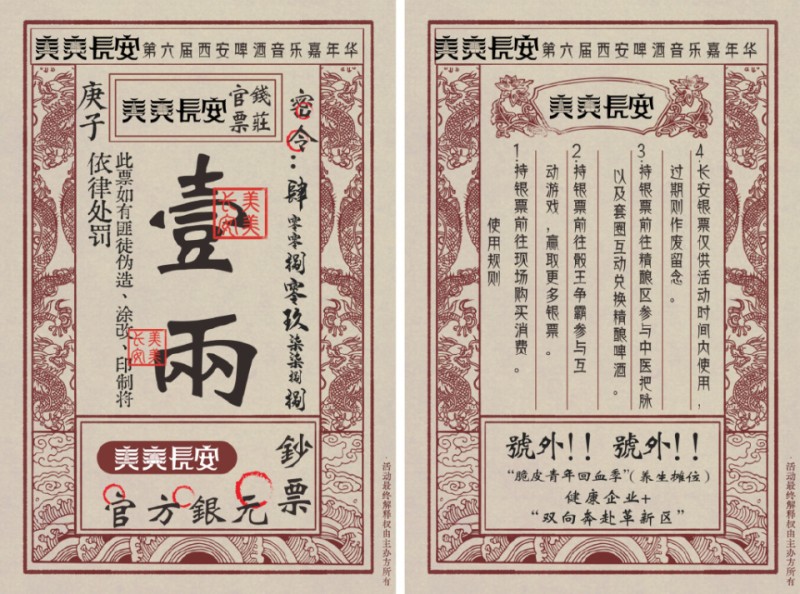 美美長安 第六届西安啤酒音乐嘉年华
密令：肆零零捌零玖柒柒捌捌
錢莊
官票
美美長安
庚子
壹兩
美美长安
美美长安
此票如有匪徒伪造、涂改、印制将
依律处罚
美美長安
鈔票
官方銀元
活动最终解释权由主办方所有
美美長安 第六届西安啤酒音乐嘉年华
美美長安
使用规则
1.持银票前往现场购买消费。
2.持银票前往骰王争霸参与互
动游戏，赢取更多银票。
3.持银票前往精酿区参与中医把脉
以及套圈互动兑换精酿啤酒。
4.长安银票仅供活动时间内使用，
过期则作废留念。
號外!! 號外!!
“脆皮青年回血季”(养生摊位)
健康企业+
“双向奔赴革新区”
活动最终解释权由主办方所有